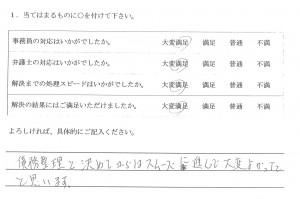 1．当てはまるものに○を付けて下さい。
事務員の対応はいかがでしたか。 大変満足 満足 普通 不満
弁護士の対応はいかがでしたか。 大変満足 満足 普通 不満
解決までの処理スピードはいかがでしたか。 大変満足 満足 普通 不満
解決の結果にはご満足いただけましたか。 大変満足 満足 普通 不満
よろしければ、具体的にご記入ください。
債務整理と決めてからはスムーズに進んで大変よかった
と思います。